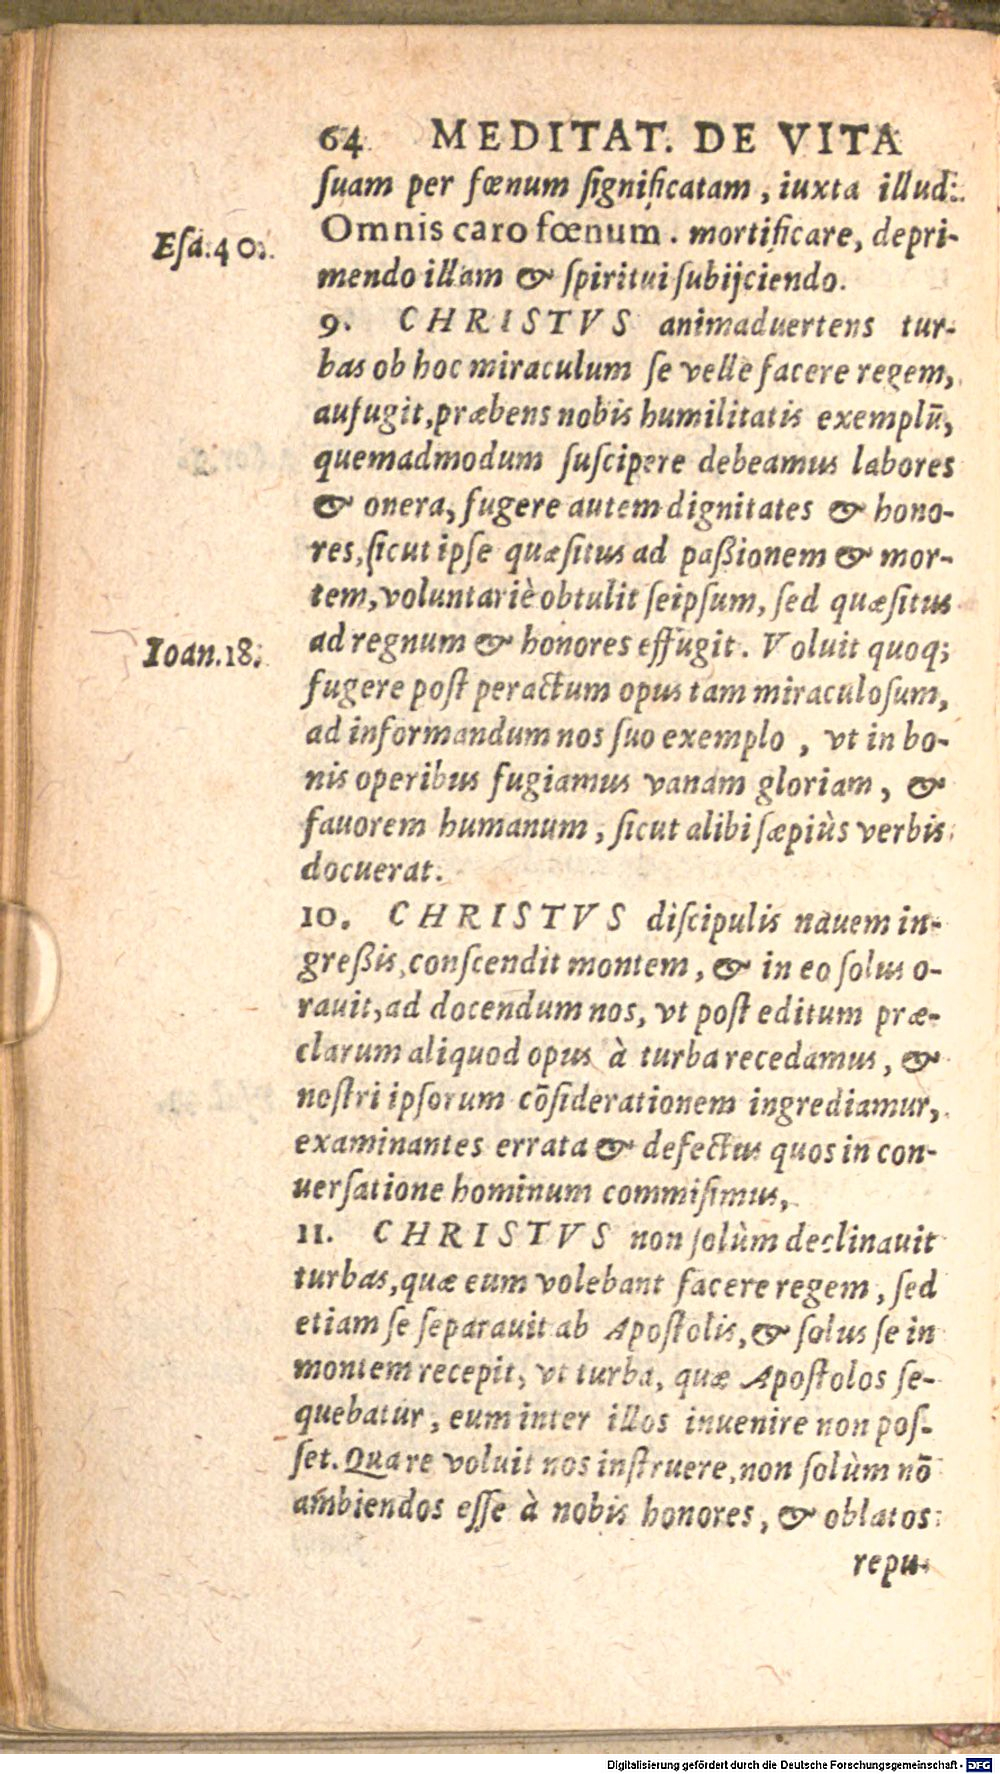 64 MEDITAT. DE VITA
ſuam per fœnum ſignificatam, iuxta illud:
Omnis caro fœnum. mortificare, depri-
Eſa.40.
mendo illam & ſpiritui ſubijciendo.
9. CHRISTVS animaduertens tur-
bas ob hoc miraculum ſe velle facere regem,
aufugit, præbens nobis humilitatis exemplū,
quemadmodum ſuſcipere debeamus labores
& onera, fugere autem dignitates & hono-
res, ſicut ipſe quæſitus ad paßionem & mor-
tem, voluntariè obtulit ſeipſum, ſed quæſitus
Ioan.18.
ad regnum & honores effugit. Voluit quoq;
fugere poſt peractum opus tam miraculoſum,
ad informandum nos ſuo exemplo, vt in bo-
nis operibus fugiamus vanam gloriam, &
fauorem humanum, ſicut alibi ſæpiùs verbis
docuerat.
10. CHRISTVS diſcipulis nauem in-
greßis, conſcendit montem, & in eo ſolus o-
rauit, ad docendum nos, vt poſt editum præ-
clarum aliquod opus à turba recedamus, &
noſtri ipſorum cōſiderationem ingrediamur,
examinantes errata & defectus quos in con-
uerſatione hominum commiſimus.
11. CHRISTVS non ſolùm declinauit
turbas, quæ eum volebant facere regem, ſed
etiam ſe ſeparauit ab Apoſtolis, & ſolus ſe in
montem recepit, vt turba, quæ Apoſtolos ſe-
quebatur, eum inter illos inuenire non poſ-
ſet. Quare voluit nos inſtruere, non ſolùm nō
ambiendos eſſe à nobis honores, & oblatos
repu-
Digitalisierung gefördert durch die Deutsche Forschungsgemeinschaft - DFG